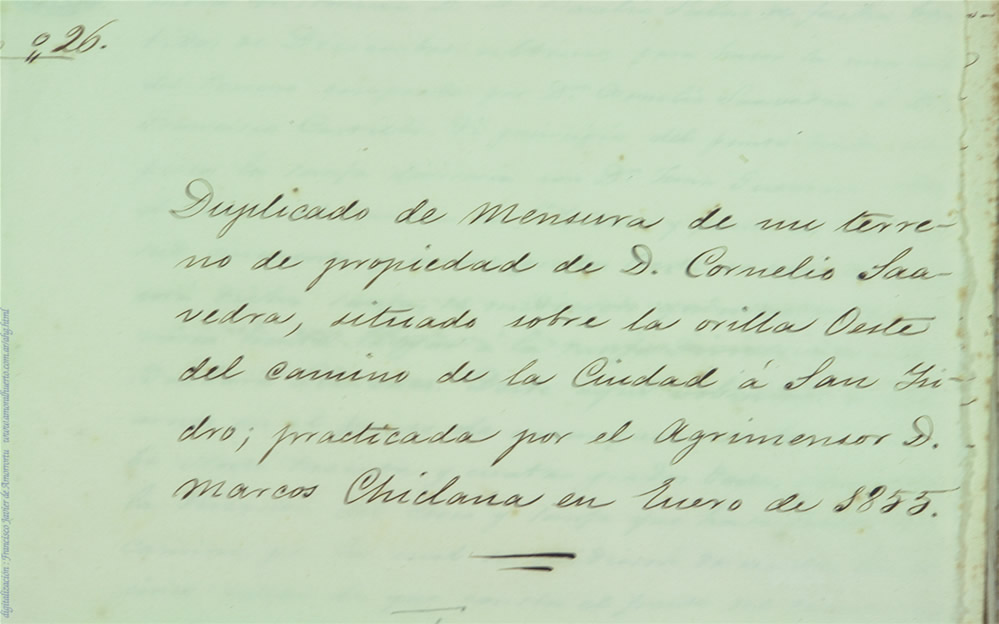 º 26.
Duplicado de Mensura de un terre-
no de propiedad de D. Cornelio Saa-
vedra, situado sobre la orilla Oeste
del camino de la Ciudad á San Isi-
dro; practicada por el Agrimensor D.
Marcos Chiclana en Enero de 1855.
digitalización: Francisco Javier de Amorrortu www.amoralhuerto.com.ar/abg.html